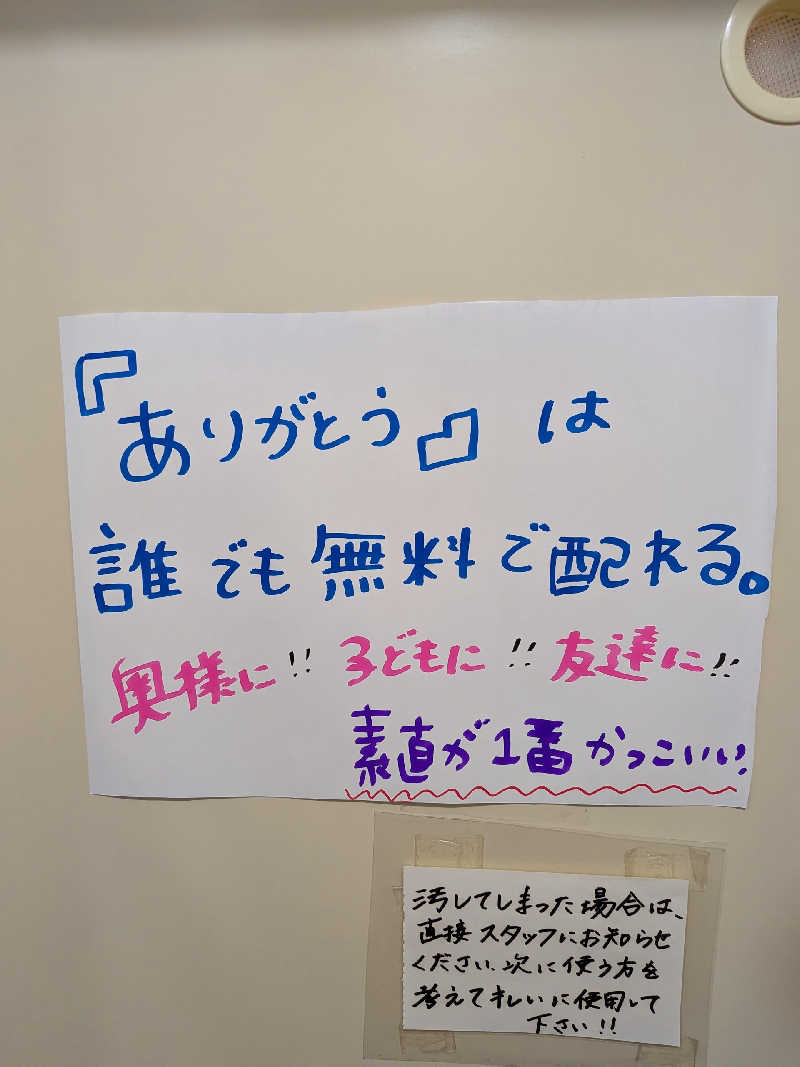 『ありがとう』は
誰でも無料で配れる。
奥様に!! 子どもに!! 友達に!!
素直が1番かっこいい!
汚してしまった場合は、
直接スタッフにお知らせ
ください。次に使う方を
考えてキレいに使用して
下さい!!